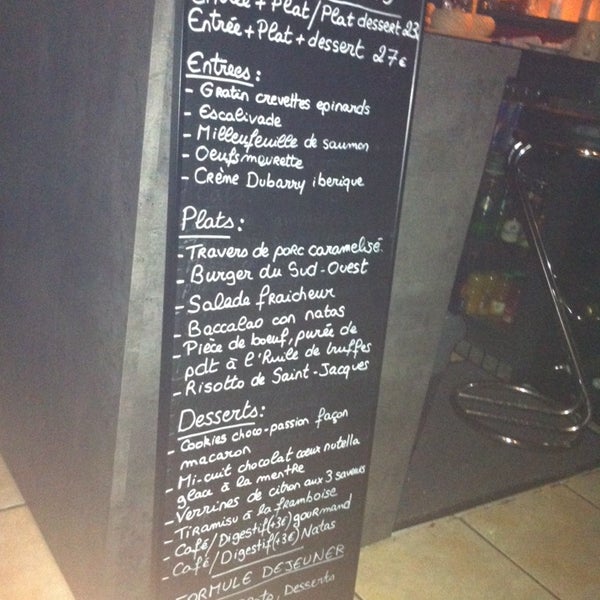 Entrée + Plat / Plat dessert 23
Entrée + Plat + dessert 27€
Entrees :
- Gratin crevettes epinards
- Escalivade
- Millefeuille de saumon
- Oeufs meurette
- Crème Dubarry iberique
Plats :
- Travers de porc caramelisé
- Burger du Sud-Ouest
- Salade fraicheur
- Baccalao con natas
- Pièce de boeuf, purée de
pdt à l'Huile de truffes
- Risotto de Saint-Jacques
Desserts :
- Cookies choco-passion façon
macaron
- Mi-cuit chocolat cœur nutella
glace à la menthe
- Verrines de citron aux 3 saveurs
- Tiramisu à la framboise
- Café/Digestif(+3€) gourmand
- Café/Digestif(+3€) Natas
FORMULE DEJEUNER
Desserts